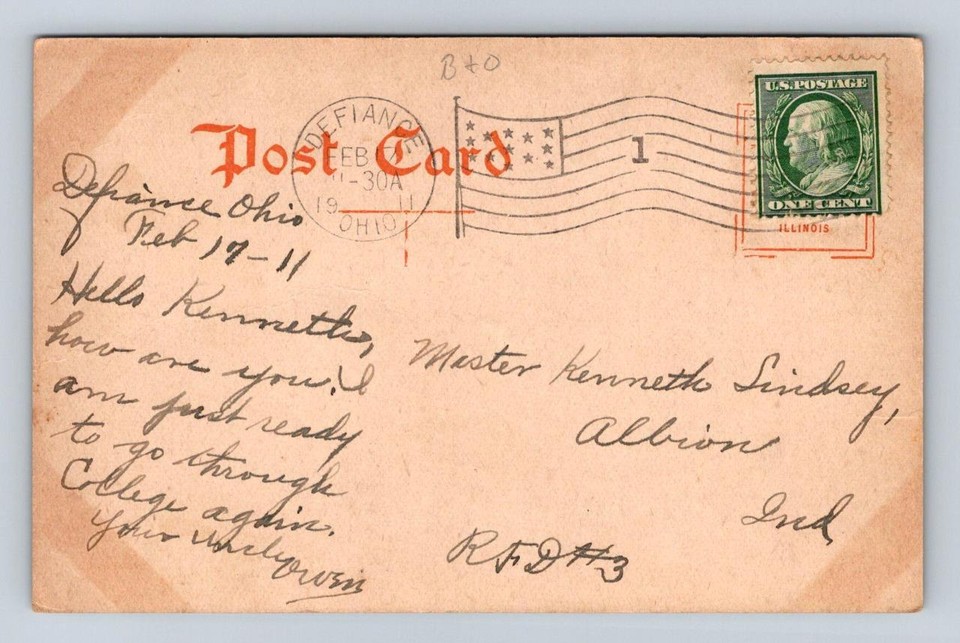 B & O
Post Card
DEFIANCE
FEB
-30A
19 11
OHIO
1
U.S. POSTAGE
ONE CENT
ILLINOIS
Defiance Ohio
Feb 17-11
Hello Kenneth,
how are you? I
am just ready
to go through
College again.
Your Uncle
Owen
Master Kenneth Lindsey,
Albion
Ind,
RFD #3